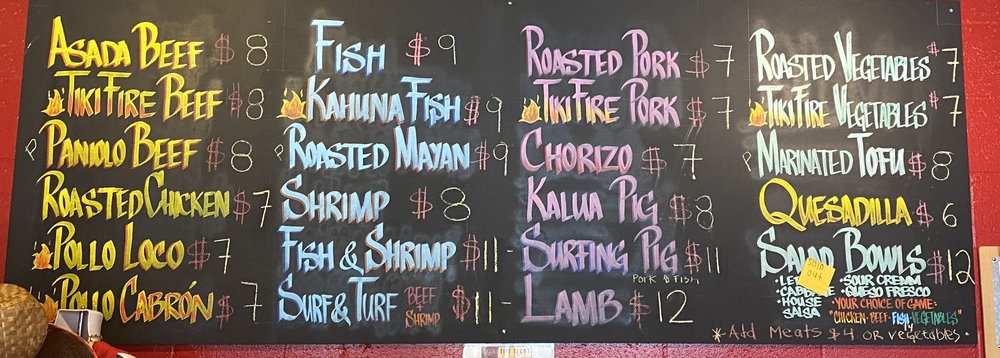 ASADA BEEF $8
TIKI FIRE BEEF $8
PANIOLO BEEF $8
ROASTED CHICKEN $7
POLLO LOCO $7
POLLO CABRÓN $7
FISH $9
KAHUNA FISH $9
ROASTED MAYAN $9
SHRIMP $8
FISH & SHRIMP $11-
SURF & TURF BEEF SHRIMP $11-
ROASTED PORK $7
TIKI FIRE PORK $7
CHORIZO $7
KALUA PIG $8
SURFING PIG $11
PORK & FISH
LAMB $12
ROASTED VEGETABLES $7
TIKI FIRE VEGETABLES $7
MARINATED TOFU $8
QUESADILLA $6
SALAD BOWLS $12
SOLD OUT
• SOUR CREMM
• QUESO FRESCO
• HOUSE SALSA
"YOUR CHOICE OF GAME•
"CHICKEN•BEEF•FISH•VEGETABLES"
* Add Meats $4 or vegetables